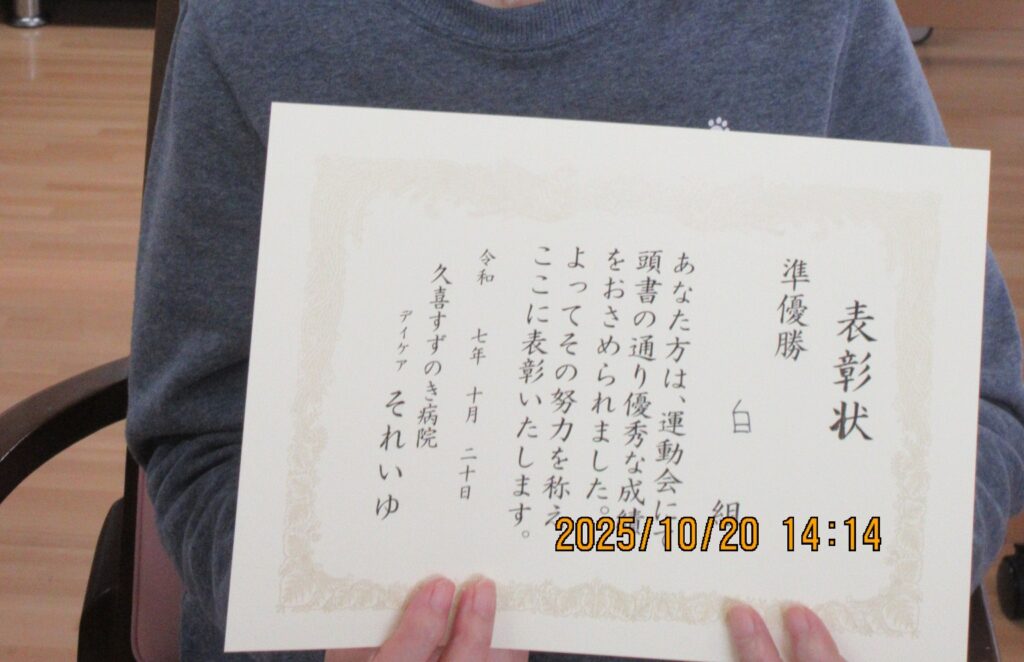 表彰状
準優勝
白 組
あなた方は、運動会にて
頭書の通り優秀な成績
をおさめられました。
よってその努力を称え
ここに表彰いたします。
令和 七年 十月 二十日
久喜すずのき病院
デイケア それいゆ
2025/10/20 14:14